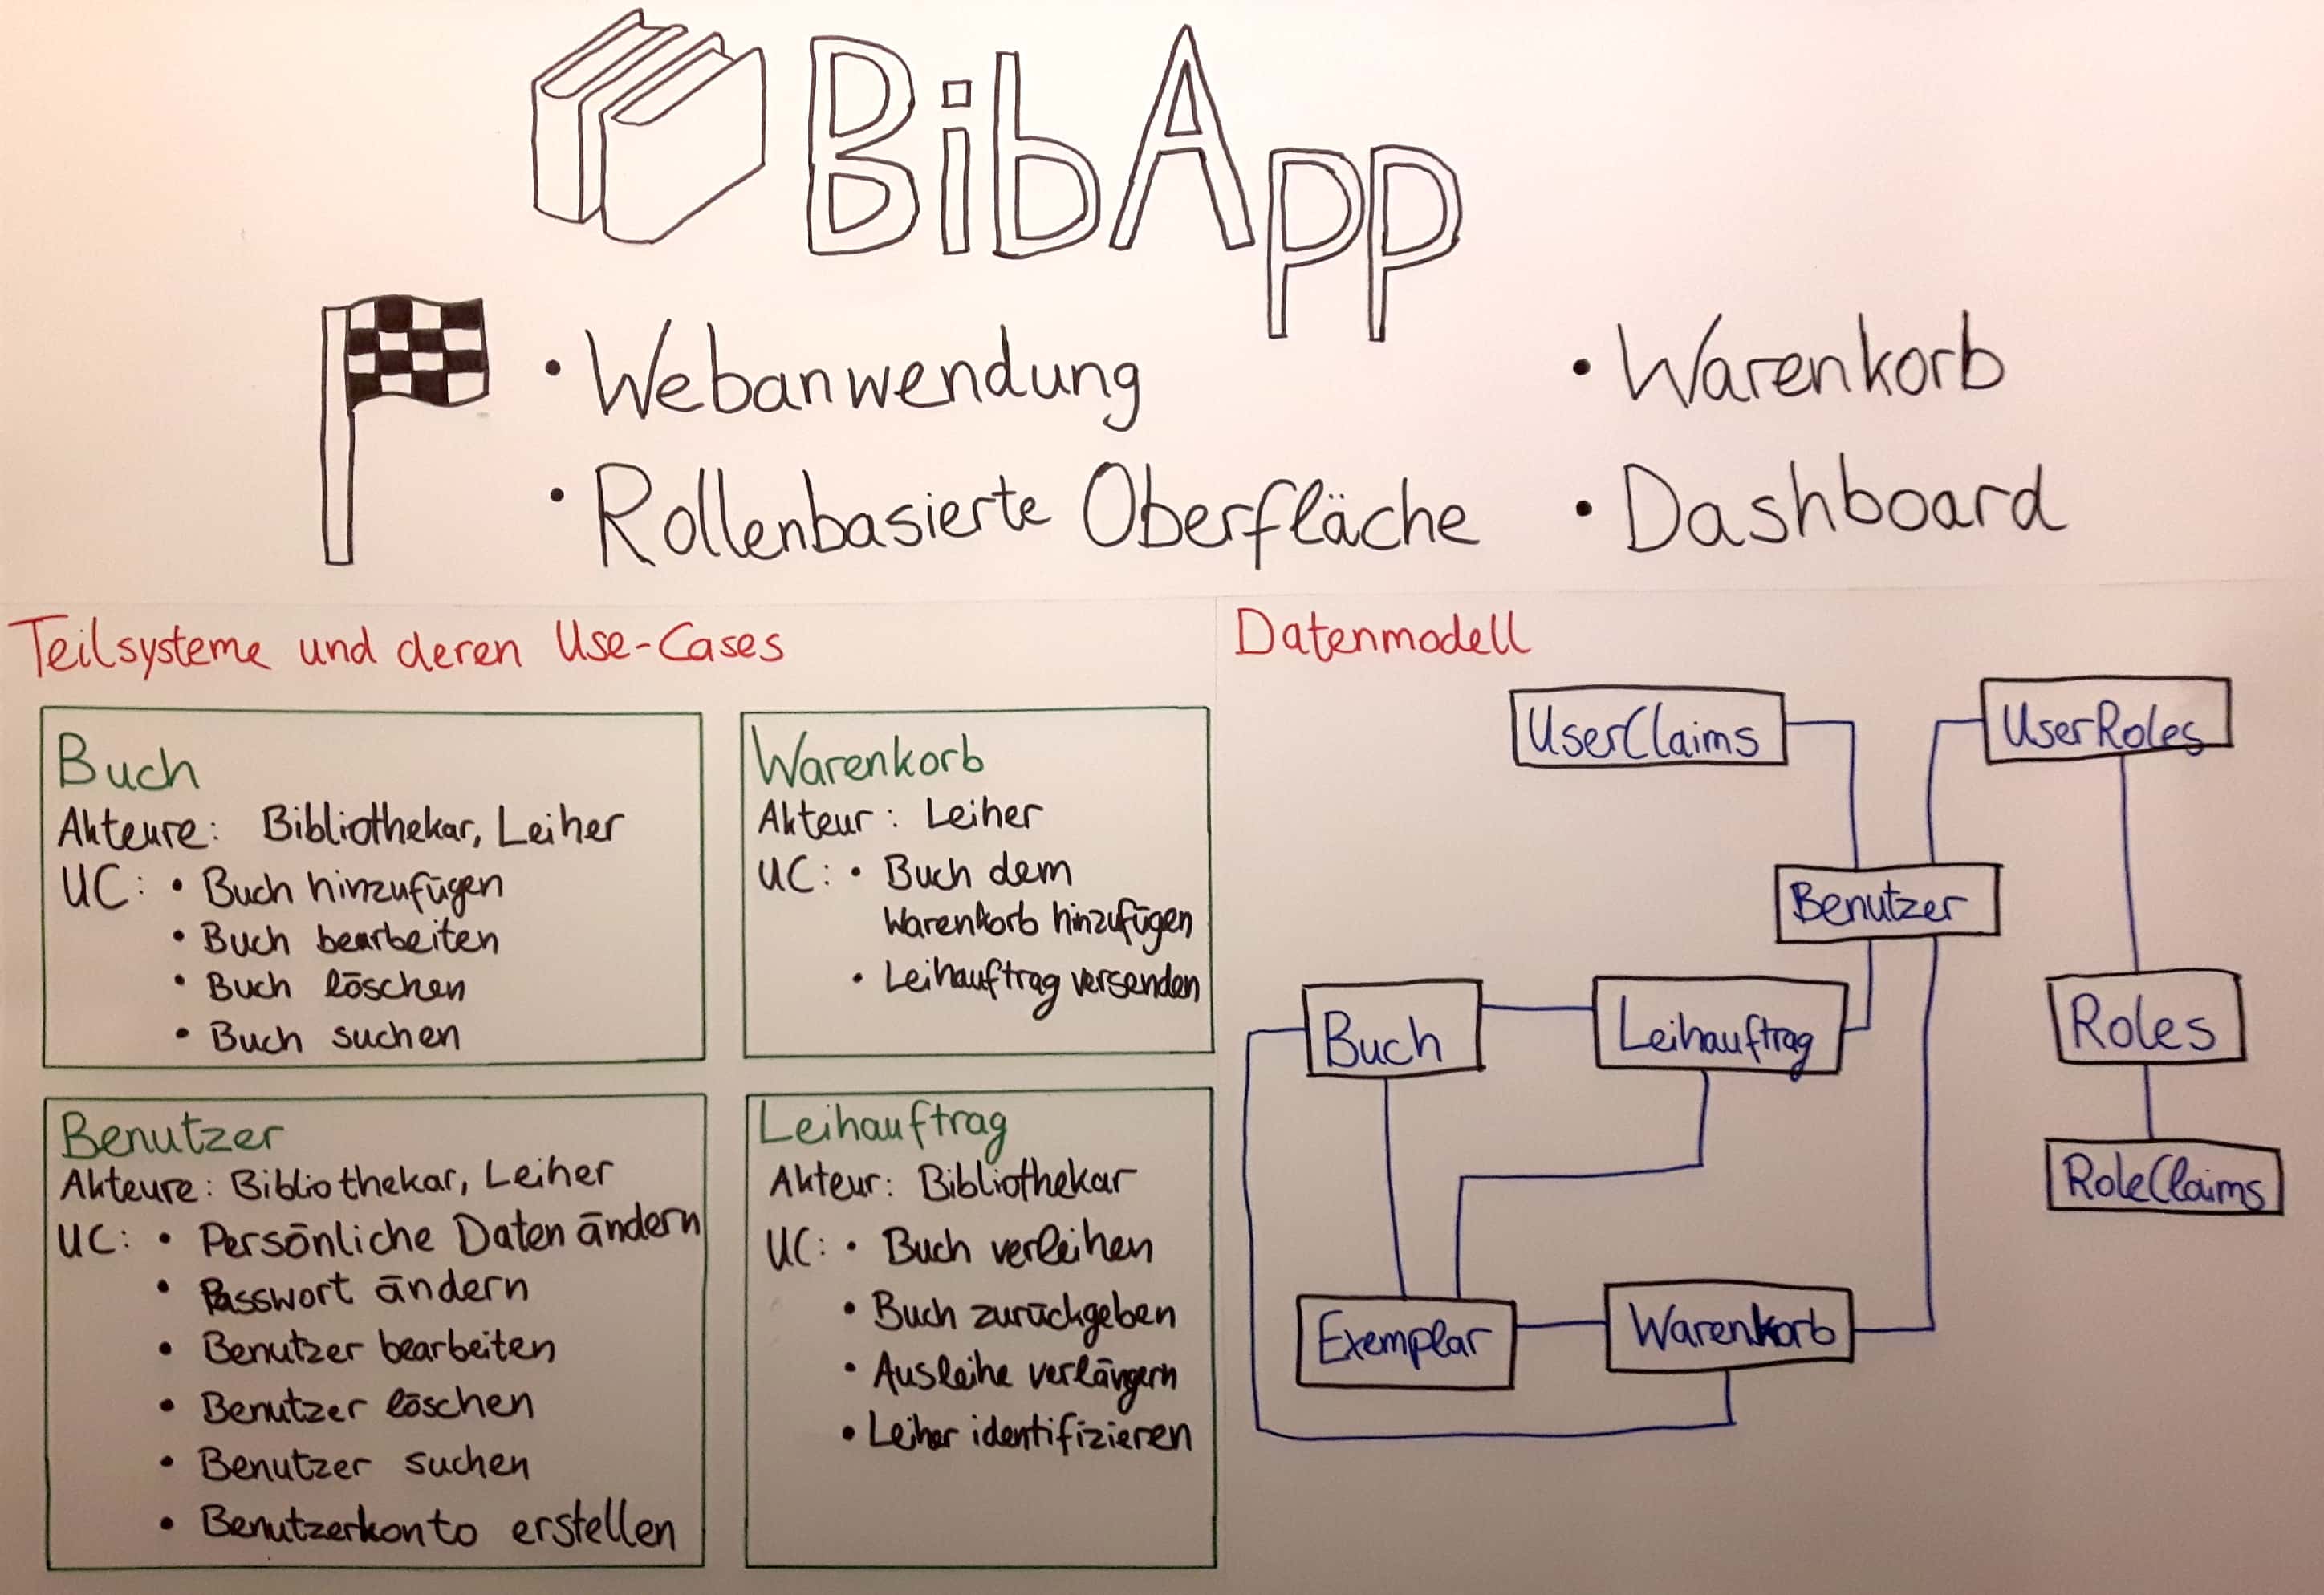 BibApp
• Webanwendung
• Rollenbasierte Oberfläche
• Warenkorb
• Dashboard
Teilsysteme und deren Use-Cases
Buch
Akteure: Bibliothekar, Leiher
UC: • Buch hinzufügen
• Buch bearbeiten
• Buch löschen
• Buch suchen
Warenkorb
Akteur: Leiher
UC: • Buch dem
Warenkorb hinzufügen
• Leihauftrag versenden
Benutzer
Akteure: Bibliothekar, Leiher
UC: • Persönliche Daten ändern
• Passwort ändern
• Benutzer bearbeiten
• Benutzer löschen
• Benutzer suchen
• Benutzerkonto erstellen
Leihauftrag
Akteur: Bibliothekar
UC: • Buch verleihen
• Buch zurückgeben
• Ausleihe verlängern
• Leiher identifizieren
Datenmodell
UserClaims
UserRoles
Benutzer
Buch
Leihauftrag
Roles
RoleClaims
Exemplar
Warenkorb